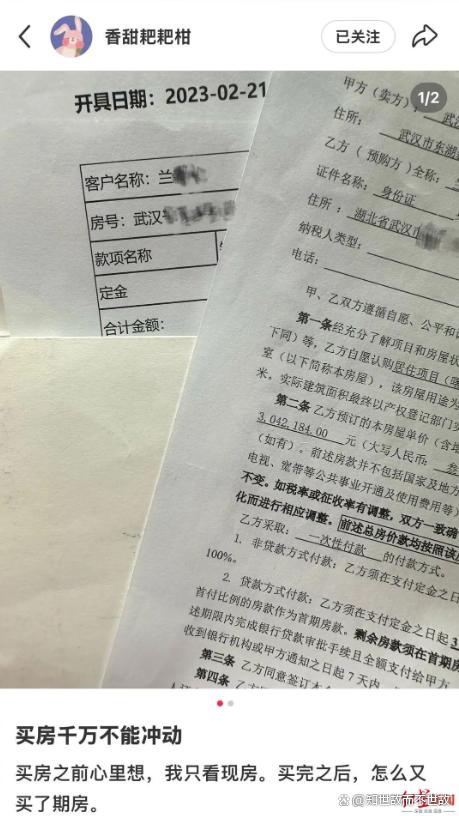 香甜耙耙柑
已关注
1/2
开具日期：2023-02-21
客户名称：兰
房号：武汉
款项名称
定金
合计金额：
甲方（卖方）：武汉
住所：武汉市东湖
乙方（预购方）全称：
证件名称：身份证
住所：湖北省武汉市
纳税人类型：
电话：
甲、乙双方遵循自愿、公平和
第一条经充分了解项目和房屋状
下同）等，乙方自愿认购居住项目（
室（以下简称本房屋），该房屋用途为
米。实际建筑面积最终以产权登记部门实
第二条 乙方预订的本房屋单价（含增
3,042,184.00 元（大写人民币：叁
（如有）。前述房款并不包括国家及地方
电视、宽带等公共事业开通及使用费用等）
不变。如税率或征收率有调整，双方一致确
化而进行相应调整。前述总房价款均按照该
乙方采取：一次性付款 的付款方式。
1. 非贷款方式付款：乙方须在支付定金之日
100%。
2. 贷款方式付款：乙方须在支付定金之日起 3
首付比例的房款作为首期房款。剩余房款须在首期房
述期限内完成银行贷款审批手续且全额支付给甲方
收到银行机构或甲方通知之日起 7 天内，
第三条 乙方同意签订本合
第四条 乙方
买房千万不能冲动
买房之前心里想，我只看现房。买完之后，怎么又
买了期房。
知世故而不世故